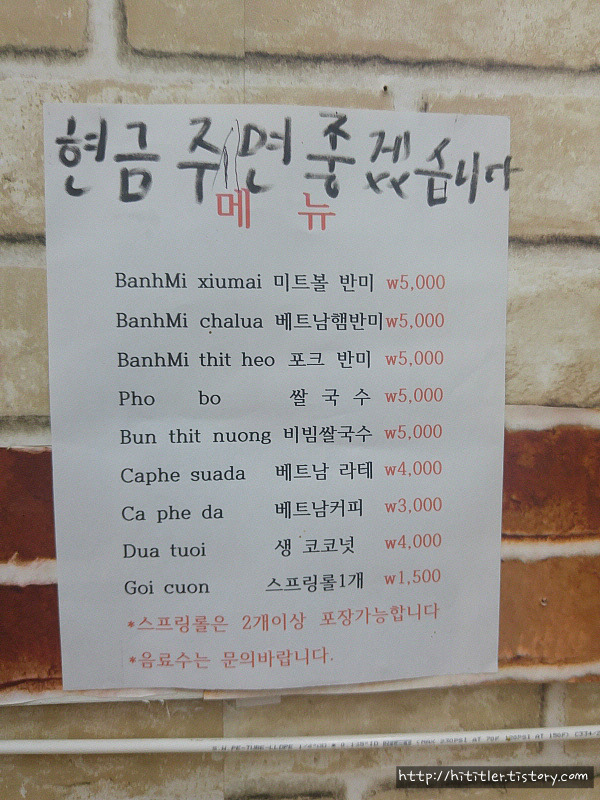 현금 주면 좋겠습니다
메 뉴
BanhMi xiumai 미트볼 반미 ₩5,000
BanhMi chalua 베트남햄반미 ₩5,000
BanhMi thit heo 포크 반미 ₩5,000
Pho bo 쌀 국 수 ₩5,000
Bun thit nuong 비빔쌀국수 ₩5,000
Caphe suada 베트남 라테 ₩4,000
Ca phe da 베트남커피 ₩3,000
Dua tuoi 생 코코넛 ₩4,000
Goi cuon 스프링롤1개 ₩1,500
*스프링롤은 2개이상 포장가능합니다
*음료수는 문의바랍니다.
http://hititler.tistory.com